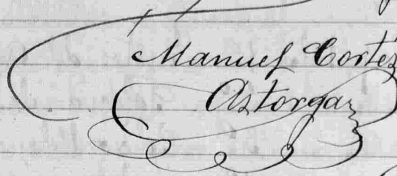 Manuel Cortez
Astorga